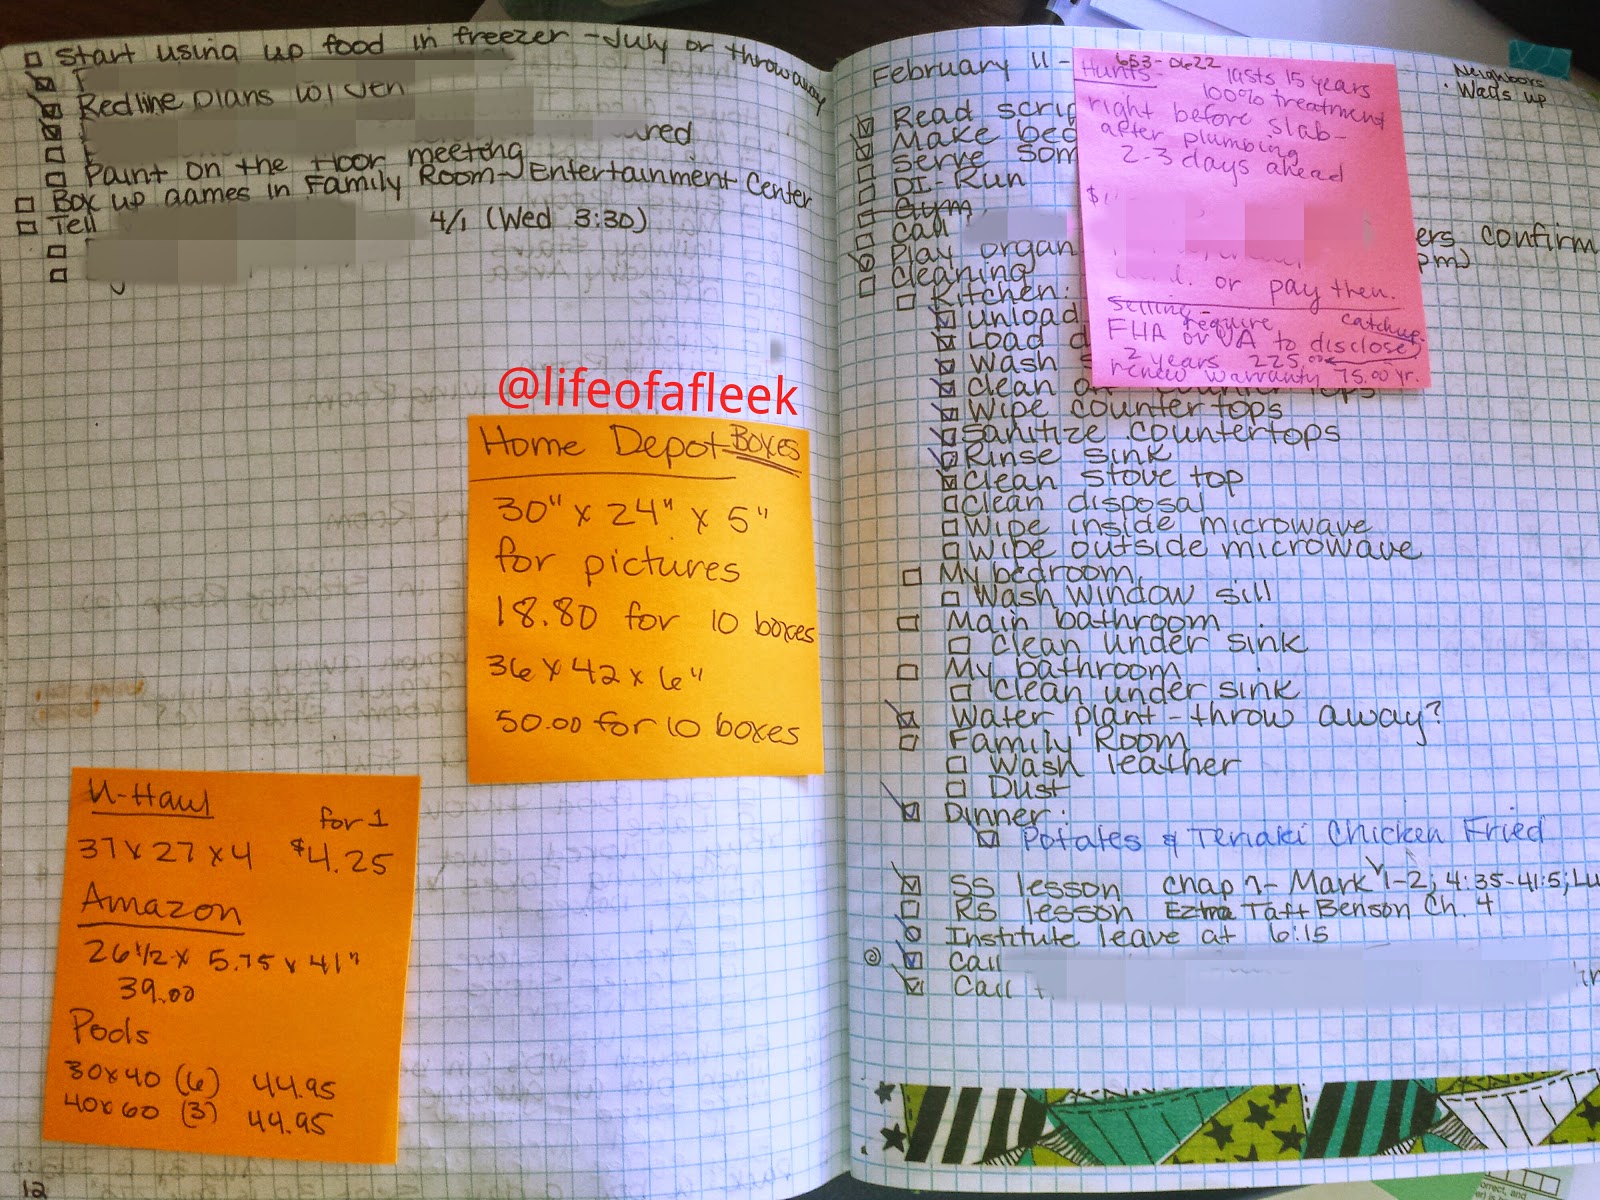 Start using up food in freezer - July or throwaway
Redline plans w/ Jen
ured
Paint on the floor meeting
Box up games in Family Room - Entertainment Center
Tell 4/1 (Wed 3:30)
@lifeofafleek
Home Depot - Boxes
30" x 24" x 5"
for pictures
18.80 for 10 boxes
36 x 42 x 6"
50.00 for 10 boxes
U-Haul
for 1
37 x 27 x 4 $4.25
Amazon
26 1/2 x 5.75 x 41"
39.00
Pods
30x40 (6) 44.95
40x60 (3) 44.95
12
February 11 -
Neighbors
. Walls up
Read scrip
Make bed
Serve som
DI-Run
Gym
Call
ers confirm
Play organ
pm)
Cleaning
Kitchen:
Unload
Load d
Wash s
Clean
tops
Wipe counter tops
Sanitize countertops
Rinse sink
Clean stove top
Clean disposal
Wipe inside microwave
Wipe outside microwave
My bedroom
Wash window sill
Main bathroom
Clean under sink
My bathroom
Clean under sink
Water plant - throw away?
Family Room
Wash leather
Dust
Dinner:
Potates & Teriaki Chicken Fried
SS lesson chap 7- Mark 1-2; 4:35-41:5; Lu
RS lesson Ezra Taft Benson Ch. 4
Institute leave at 6:15
Call
Call
653-0622
Hunts - lasts 15 years
100% treatment
right before slab -
after plumbing
2-3 days ahead
$1
or pay then.
Selling - require catchup
FHA or VA to disclose
2 years 225.00
renew warranty 75.00 yr.